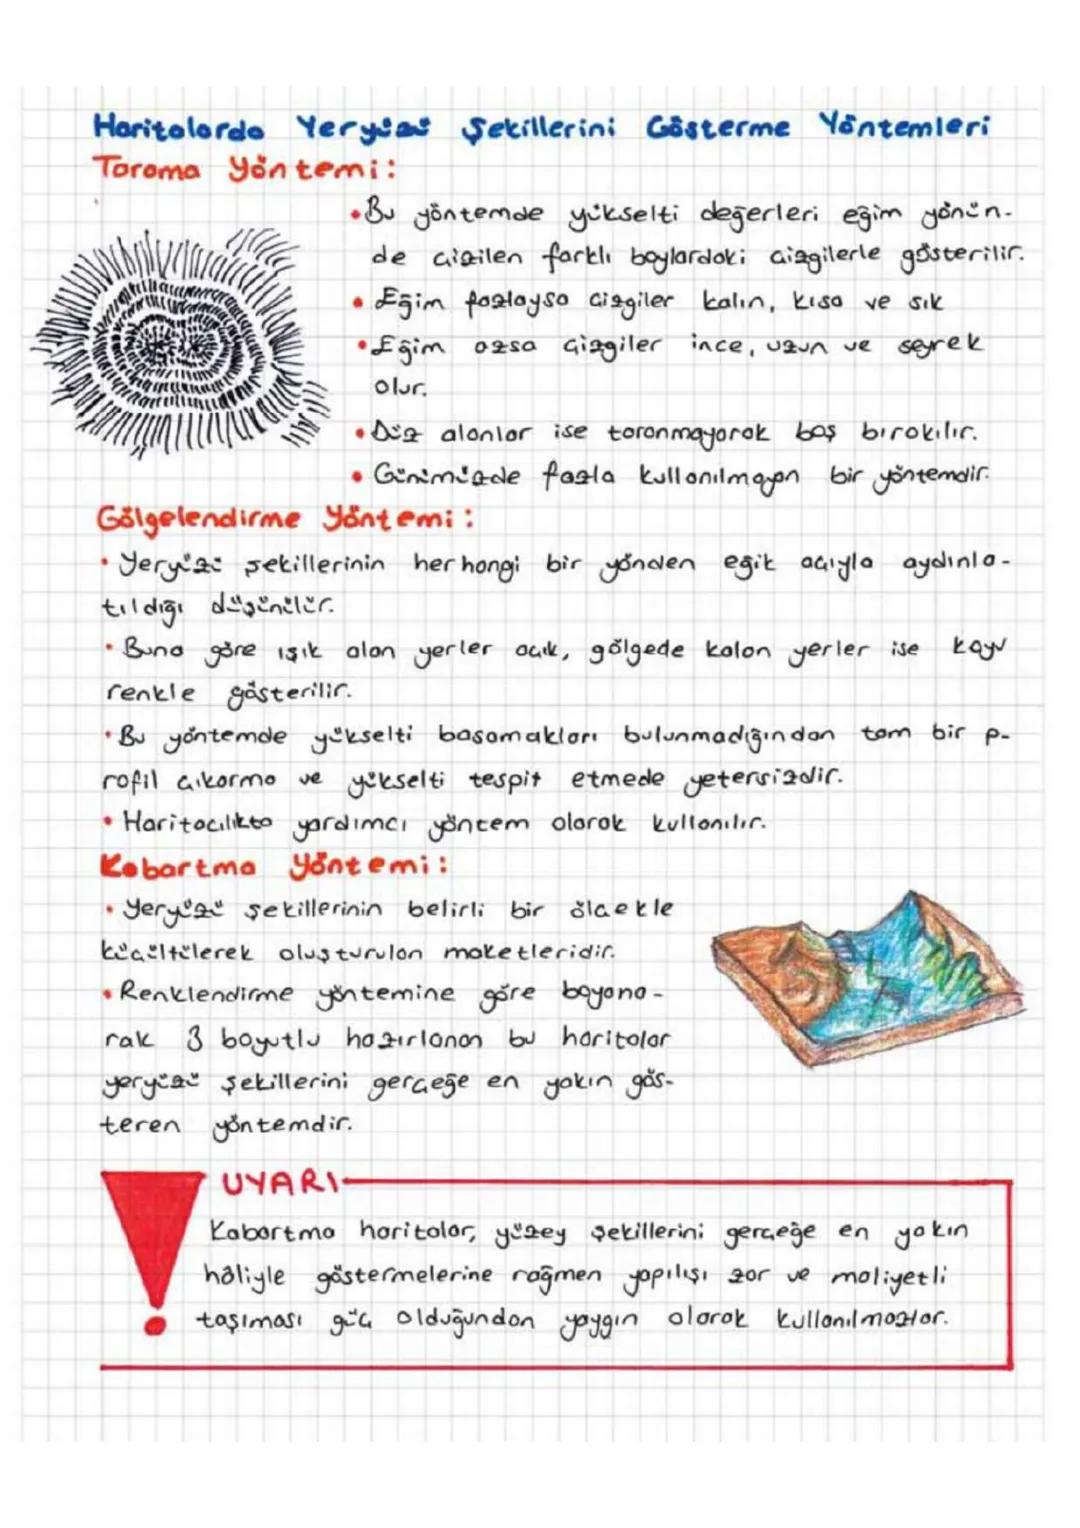 Haritalarda Yeryüzü Şekillerini Gösterme Yöntemleri
Tarama Yöntemi:
•Bu yöntemde yükselti değerleri eğim yönün-
de çizilen farklı boylardaki çizgilerle gösterilir.
• Eğim fazlaysa çizgiler kalın, kısa ve sık
•Eğim azsa çizgiler ince, uzun ve seyrek
olur.
•Düz alanlar ise taranmayarak boş bırakılır.
• Günümüzde fazla kullanılmayan bir yöntemdir.
Gölgelendirme Yöntemi:
• Yeryüzü şekillerinin herhangi bir yönden eğik açıyla aydınla-
tıldığı düşünülür.
• Buna göre ışık alan yerler açık, gölgede kalan yerler ise koyu
renkle gösterilir.
•Bu yöntemde yükselti basamakları bulunmadığından tam bir p-
rofil çıkarma ve yükselti tespit etmede yetersizdir.
• Haritacılıkta yardımcı yöntem olarak kullanılır.
Kabartma Yöntemi:
• Yeryüzü şekillerinin belirli bir ölçekle
küçültülerek oluşturulan maketleridir.
• Renklendirme yöntemine göre boyana-
rak 3 boyutlu hazırlanan bu haritalar
yeryüzü şekillerini gerçeğe en yakın gös-
teren yöntemdir.
UYARI
Kabartma haritalar, yüzey şekillerini gerçeğe en yakın
hâliyle göstermelerine rağmen yapılışı zor ve maliyetli
taşıması güç olduğundan yaygın olarak kullanılmazlar.